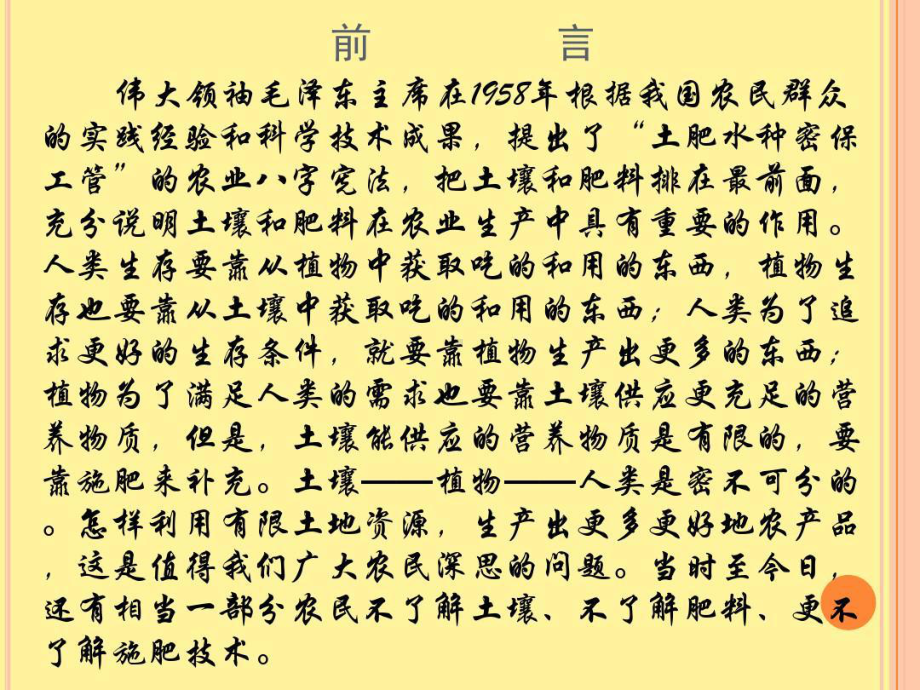 前 言
伟大领袖毛泽东主席在1958年根据我国农民群众
的实践经验和科学技术成果，提出了“土肥水种密保
工管”的农业八字宪法，把土壤和肥料排在最前面，
充分说明土壤和肥料在农业生产中具有重要的作用。
人类生存要靠从植物中获取吃的和用的东西，植物生
存也要靠从土壤中获取吃的和用的东西；人类为了追
求更好的生存条件，就要靠植物生产出更多的东西；
植物为了满足人类的需求也要靠土壤供应更充足的营
养物质，但是，土壤能供应的营养物质是有限的，要
靠施肥来补充。土壤——植物——人类是密不可分的
。怎样利用有限土地资源，生产出更多更好地农产品
，这是值得我们广大农民深思的问题。当时至今日，
还有相当一部分农民不了解土壤、不了解肥料、更不
了解施肥技术。